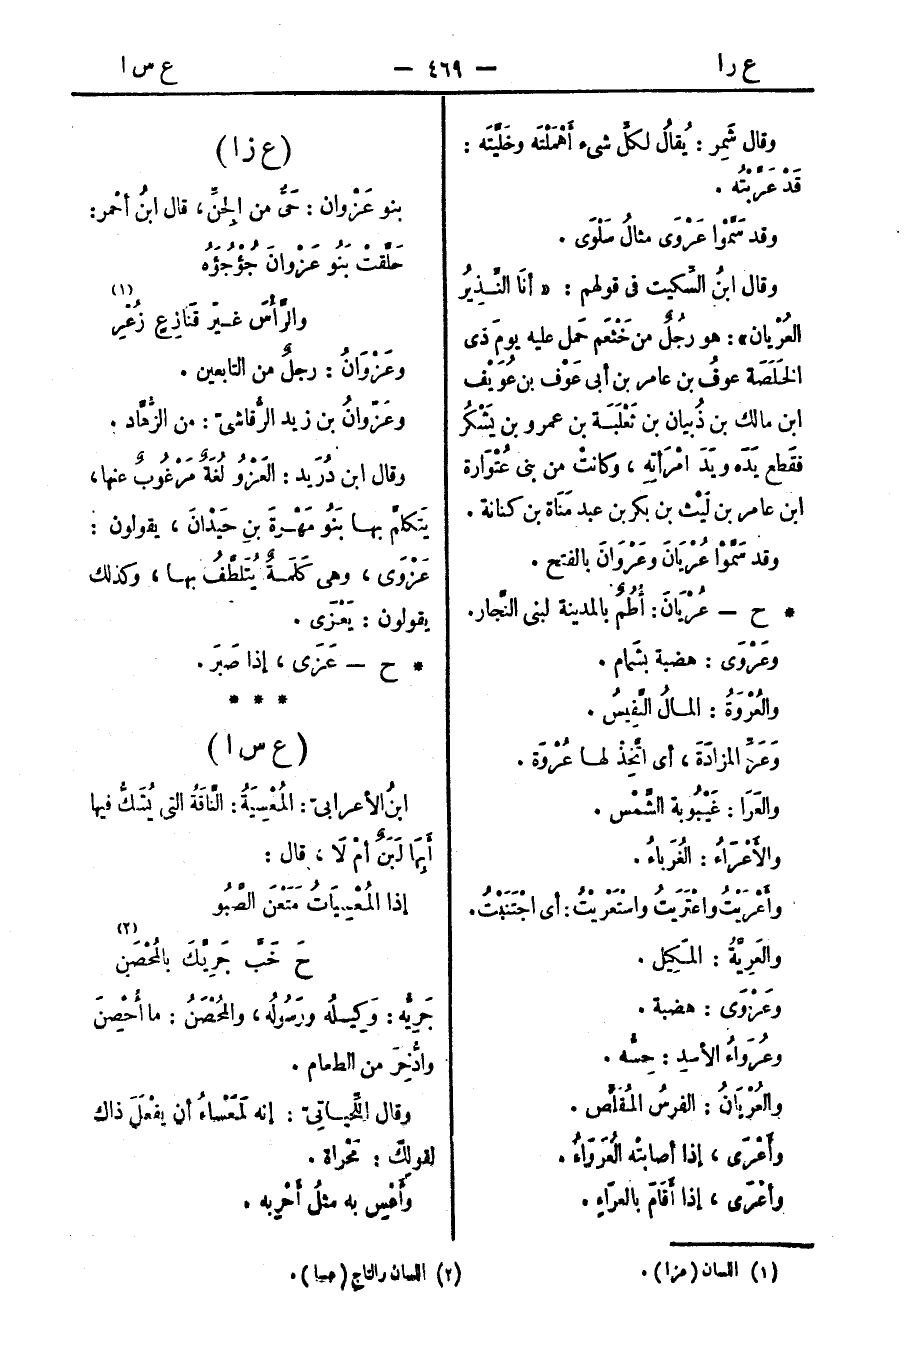 ع ر ا
— ٤٦٩ —
ع س ا
وقال شَمِر : يُقالُ لكلِّ شىء أَهْمَلْتَه وخَلَّيْتَه :
قَدْ عَرَّيْتُه .
وقد سَمَّوْا عَرْوَى مثالُ سَلْوَى .
وقال ابنُ السِّكيت فى قولهم : « أنَا النَّذِيرُ
العُرْيان» : هو رجُلٌ من خَثْعَم حَمل عليه يومَ ذى
الخَلَصَة عوفُ بن عامر بن أبى عَوْف بن عُوَيْف
ابن مالك بن ذُبيان بن ثَعْلَبَة بن عمرو بن يَشْكُر
فقَطع يَدَه ويَدَ امْرَأتِه ، وكانتْ من بنى عُتْوَارة
ابن عامر بن لَيْث بن بكر بن عبد مَنَاة بن كنانة .
وقد سَمَّوْا عُرْيَانَ وعَرْوَانَ بالفتح .
* ح — عُرْيَانَ : أُطُمٌ بالمدينة لبنى النَّجار .
وعَرْوَى : هضبة بشَمام .
والعُرْوَةُ : المـالُ النَّفِيسُ .
وَعَرَّ المزادَةَ ، أى اتَّخِذْ لهـا عُرْوَة .
والعَرَا : غَيْبُوبة الشَّمْس .
والأَعْرَاءُ : الغُرَباءُ .
وأَعْرَيْتُ واعْتَرَيْتُ واستَعْرَيْتُ : أى اجْتَنَبْتُ .
والعَرِيَّةُ : المَـكِيل .
وعَرْوَى : هضبة .
وعُرَوَاءُ الأسدِ : حِسُّه .
والعُرْيَانُ : الفرسُ المُقَلِّص .
وأَعْرَى ، إذا أصابتْه العُرَوَاءُ .
وأعْرَى ، إذا أَقَامَ بالعرَاءِ .
(ع ز ا)
بنو عَزْوان : حَىٌّ من الِجنِّ ، قال ابنُ أحْمر :
حَلَّقَتْ بَنُو عَزْوانَ جُؤْجُؤَه
والرَّأْسَ غَـيرَ قَنَازِعٍ زُعْرِ (١)
وعَزْوَانُ : رجلٌ من التابعين .
وعَزْوانُ بن زيد الرَّقاشىّ : من الزُّهَّاد .
وقال ابن دُرَيد : العَزْوُ لُغَةٌ مَرْغُوبٌ عنها ،
يَتكلَّمُ بهـا بَنُو مَهْرَةَ بنِ حَيْدَانَ ، يقولون :
عَزْوَى ، وهى كَلَمَـةٌ يُتَلَطَّفُ بهـا ، وكذلك
يقولون : يَعْزَى .
* ح — عَزَى ، إذا صَبَرَ .
* * *
(ع س ا)
ابنُ الأعرابىّ : المُعْسِيَةُ : النَّاقَةُ التى يُشَكُّ فيها
أَبِهَا لَبَنٌ أمْ لَا ، قال :
إذا المُعْسِيَاتُ مَنَعْنَ الصَّبُو
حَ خَبَّ جَرِيُّكَ بالمُحْصَنِ (٢)
جَرِيُّه : وَكِيـلُه ورَسُولُه ، والمُحْصَنُ : ما أُحْصِنَ
وادُّخِرَ من الطعام .
وقال اللِّحْيـانىّ : إنه لَمَعْسَاءٌ أن يفْعَلَ ذاك
لقولِكَ : مَحْراة .
وأَعْسِ به مثلُ أَحْرِ به .
(١) اللسان (عزا) .
(٢) اللسان والتاج (عسا) .